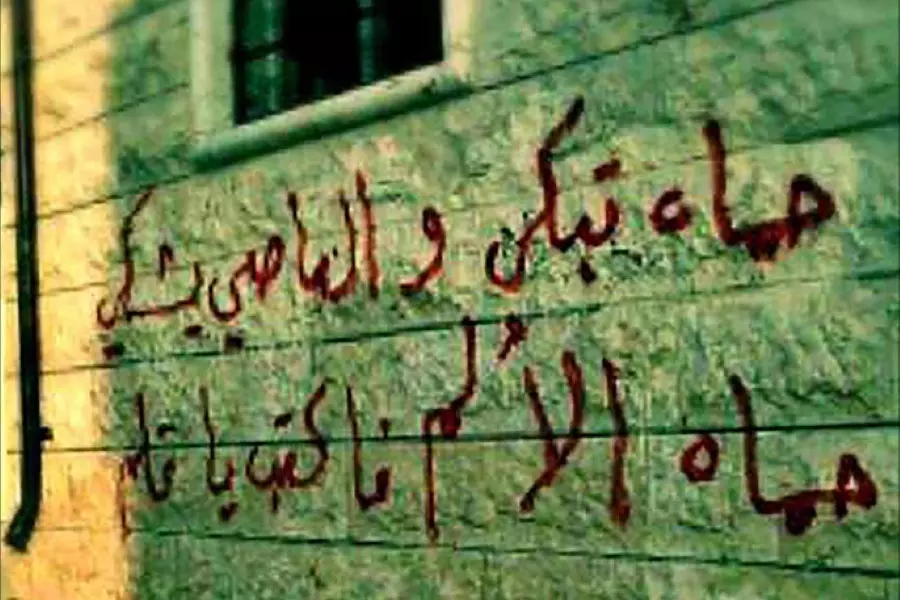 حماه تبكي والعاصي يشكي
حماه الألم فاكتب يا قلم